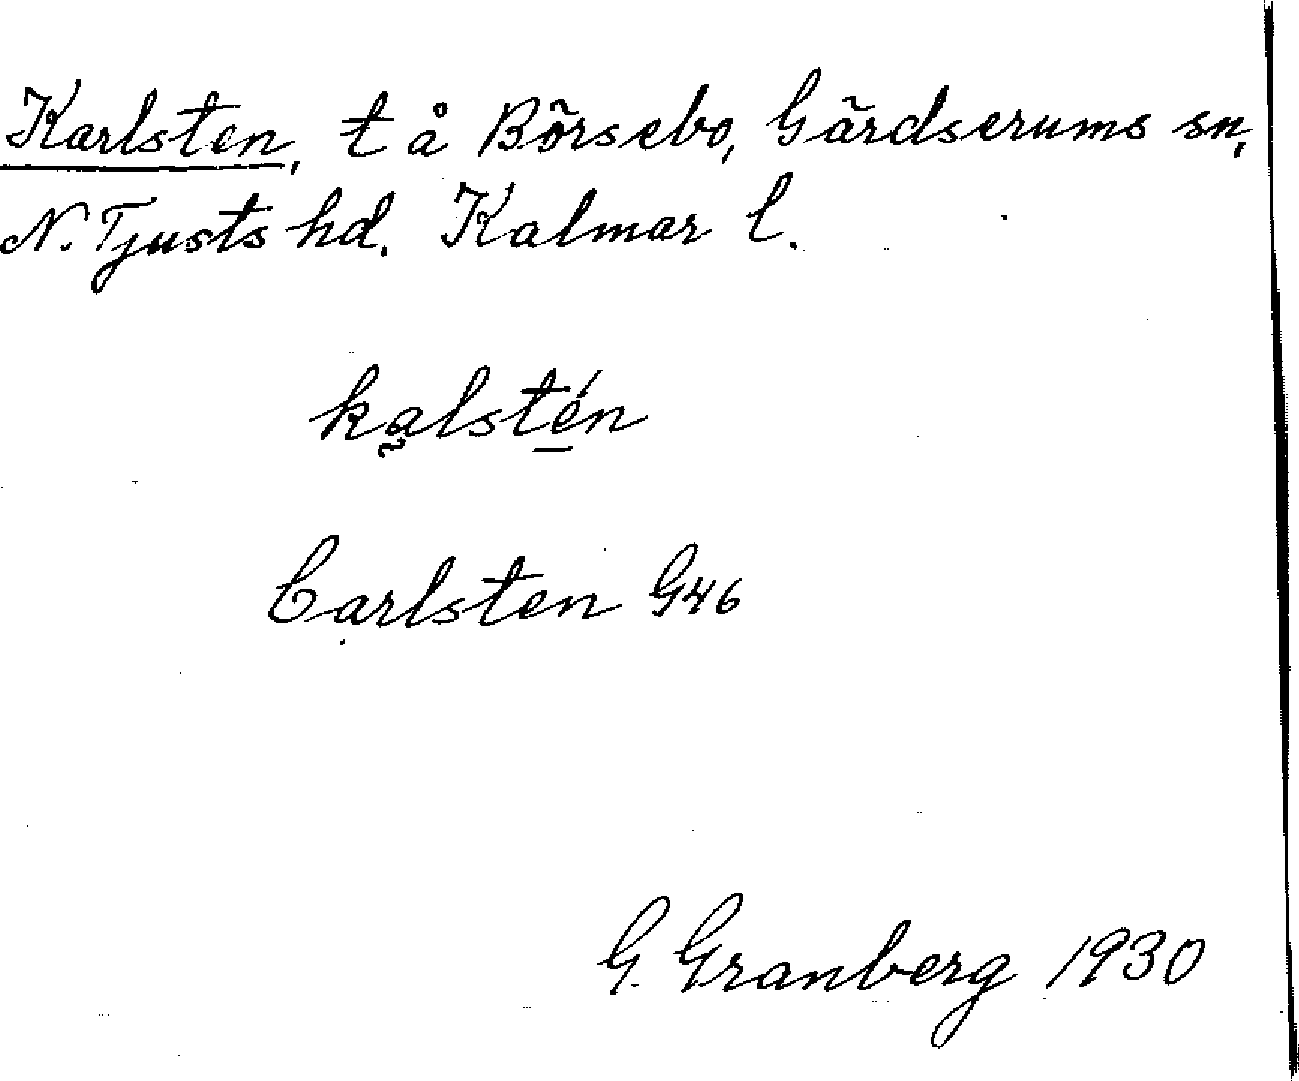 Karlsten, t å Börsebo, Gärdserums sn,
N. Tjusts hd. Kalmar l.
ka̰lsté̱n
Carlsten G46
G. Granberg 1930